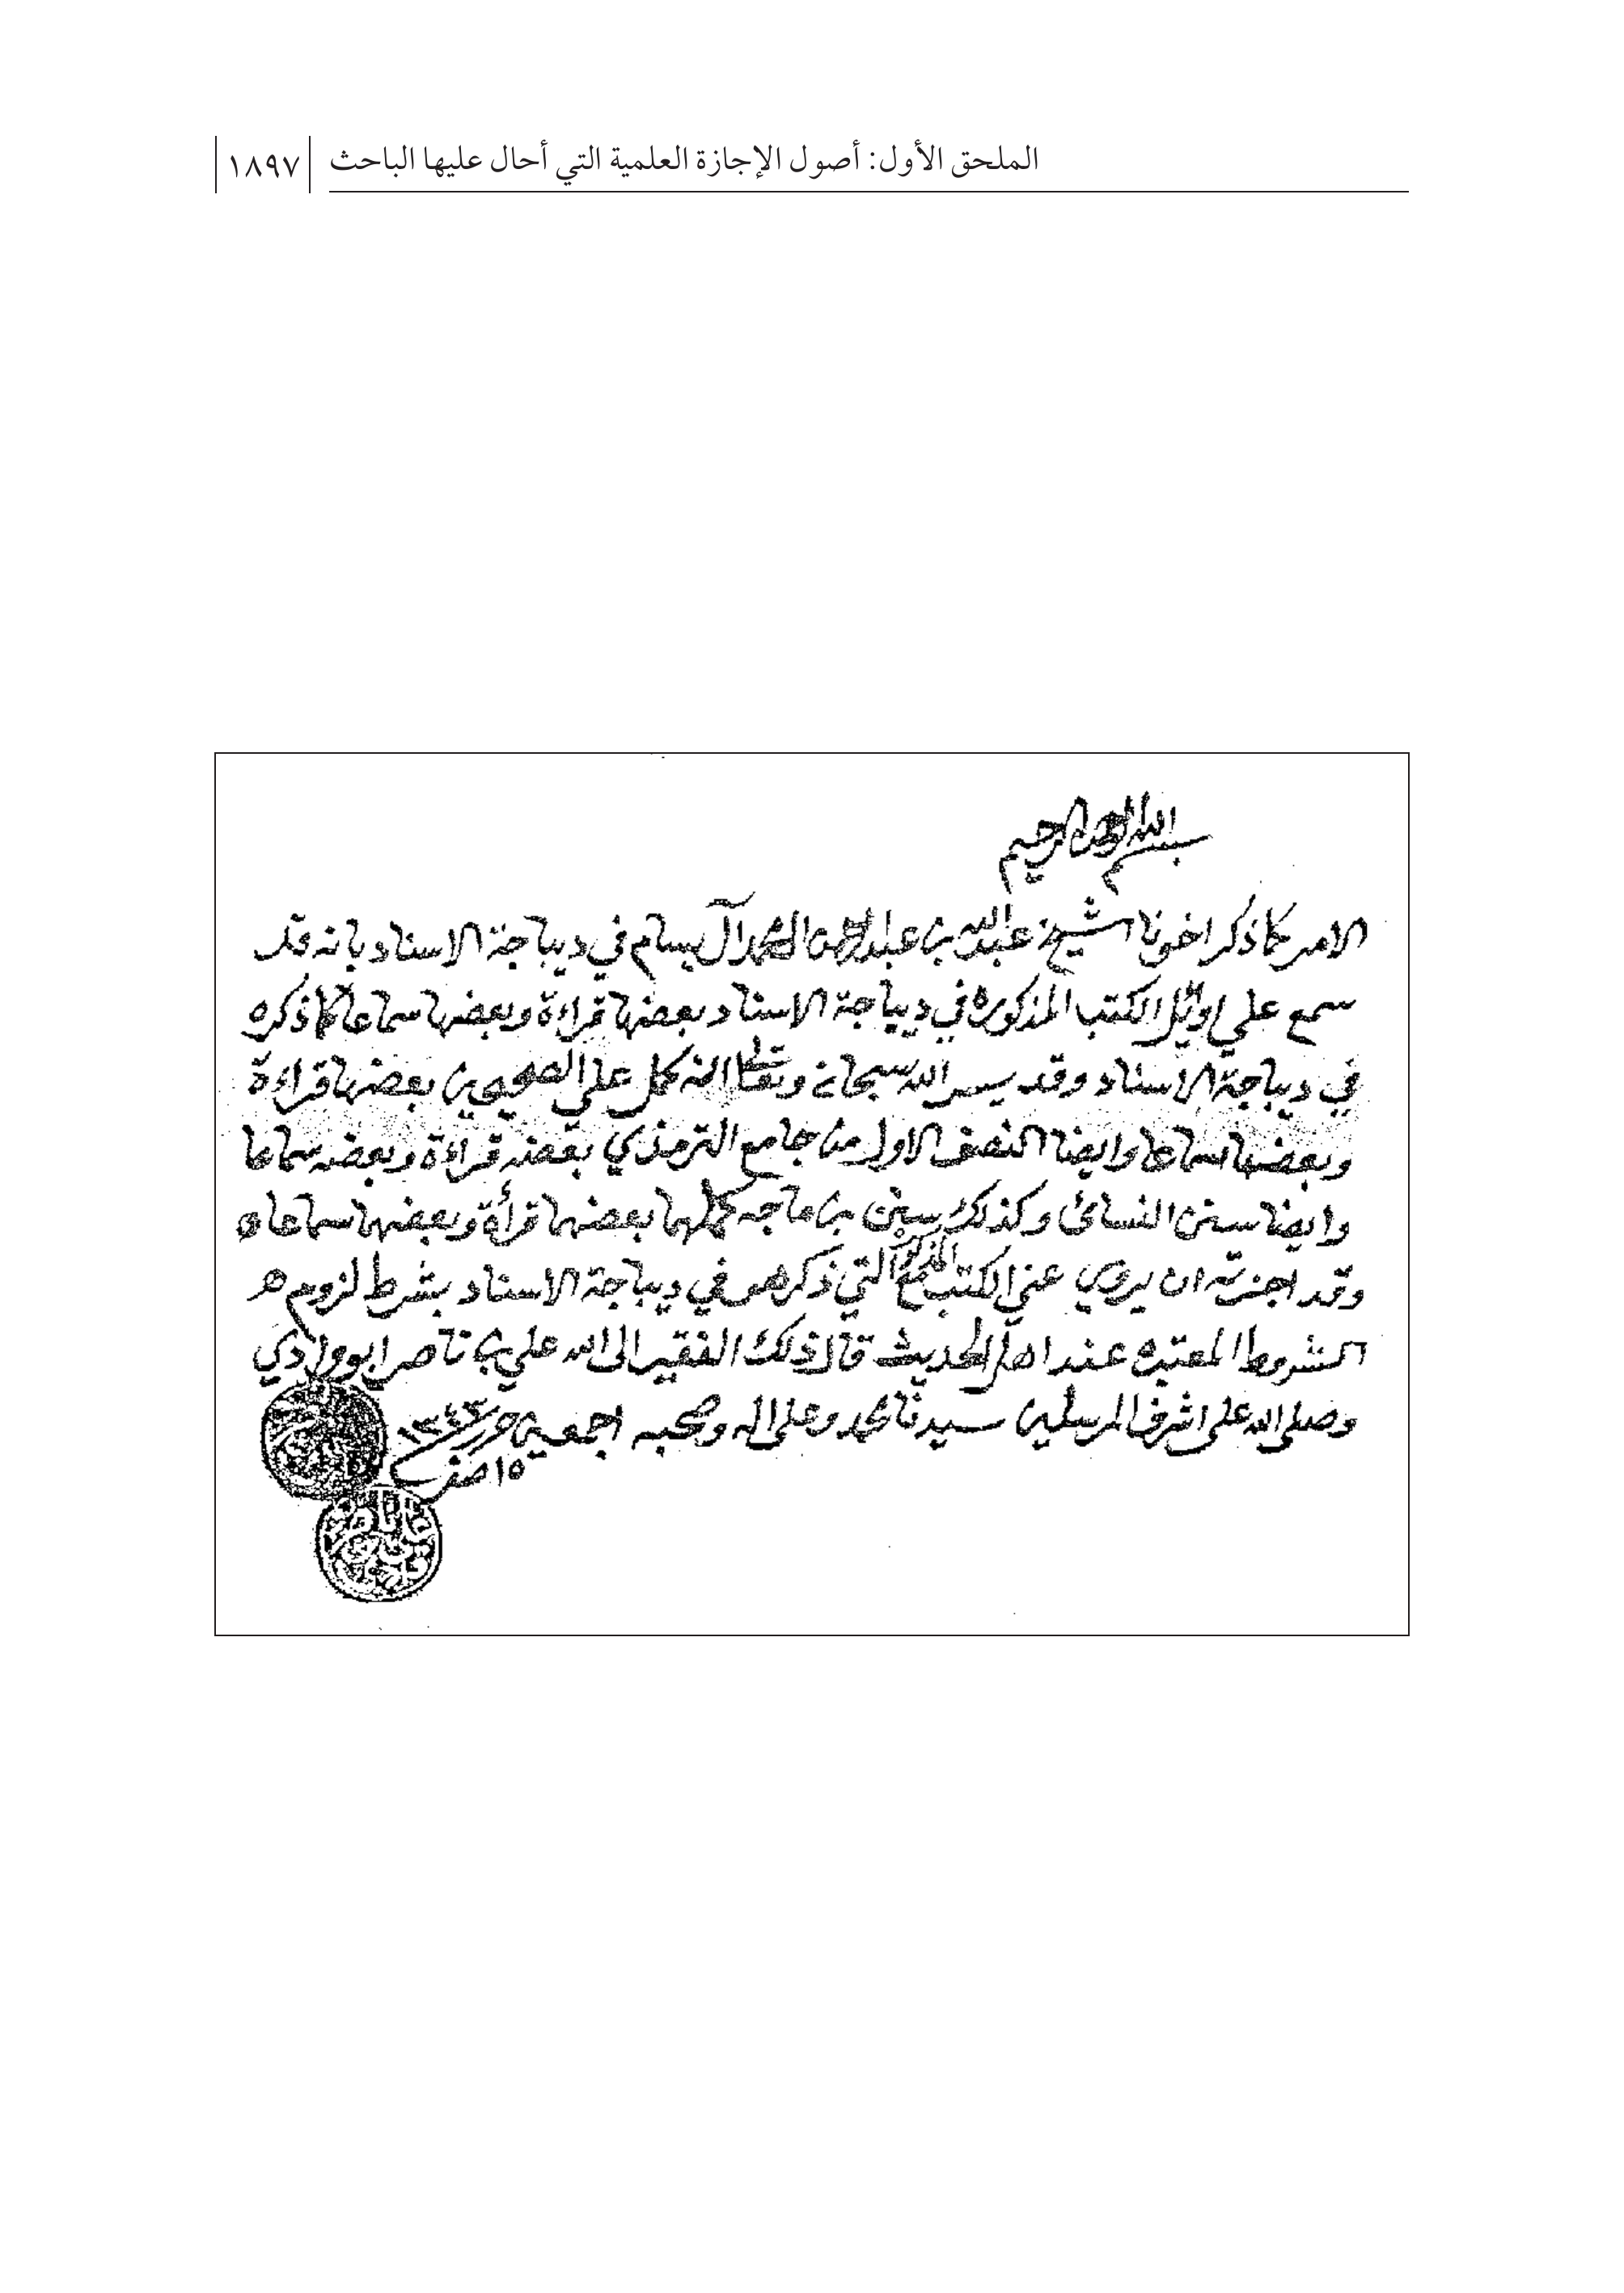 الملحق الأول: أصول الإجازة العلمية التي أحال عليها الباحث ١٨٩٧
بسم الله الرحمن الرحيم
الامر كما ذكر اخونا الشيخ عبد الله بن عبد الرحمن المحمد آل بسام في ديباجة الاسناد بانه قد
سمع علي اوئل الكتب المذكوره في ديباجة الاسناد بعضها قراءة وبعضها سماعا كما ذكره
في ديباجة الاسناد وقد يسر الله سبحانه وتعالى انه كمل علي الصحيحين بعضها قراءة
وبعضها سماعا وايضا النصف الاول من جامع الترمذي بعضه قراءة وبعضه سماعا
وايضا سنن النسائي وكذلك سنن بن ماجه كملها بعضها قرأة وبعضها سماعا
وقد اجزته ان يروي عني الكتب المذكور التي ذكر هو في ديباجة الاسناد بشرط لزوم
الشروط المعتبره عند اهل الحديث قال ذلك الفقير الى الله علي بن ناصر ابو وادي
وصلى الله على اشرف المرسلين سيدنا محمد وعلى اله وصحبه اجمعين حرر ١٣٤٣
١٥ صفر